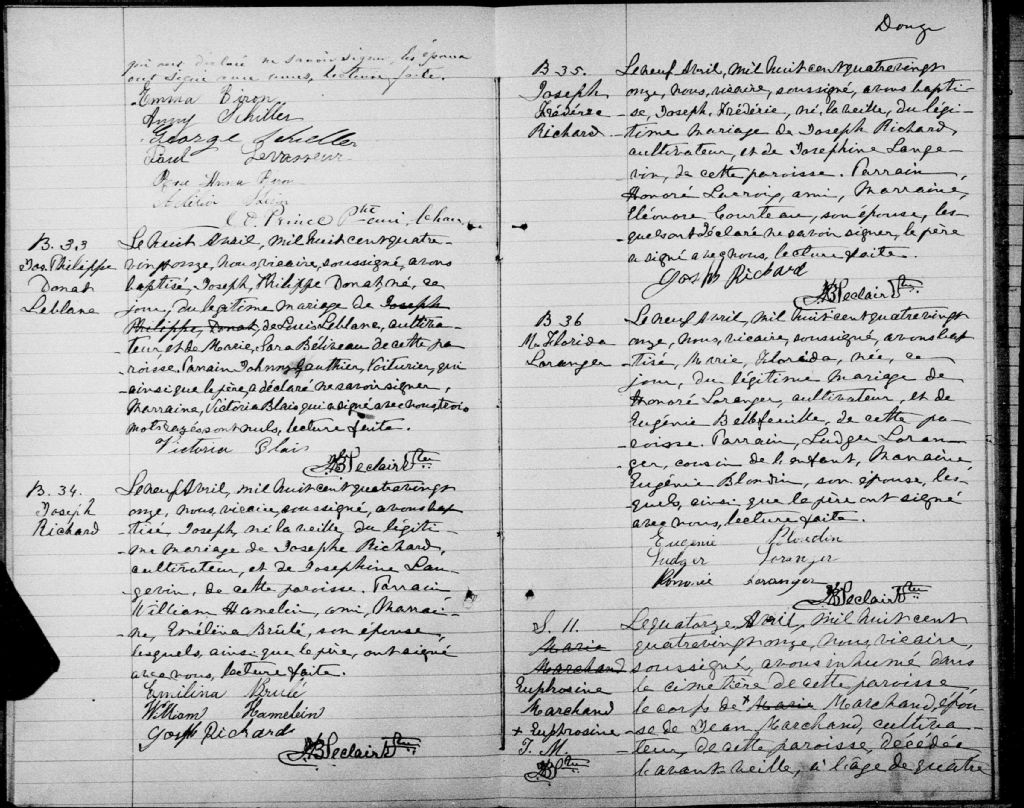 qui ont déclaré ne savoir signer, les époux
ont signé avec nous, lecture faite.
Emma Biron
Anny Schiller
George Schiller
Paul Levasseur
Rose Anna Biron
Prince Ptre curé
B. 33
Jos. Philippe
Donat
Leblanc
Le huit Avril, mil huit cent quatre-
vingt onze, nous, vicaire, soussigné, avons
baptisé, Joseph, Philippe Donat, né, ce
jour, du légitime mariage de Joseph
Philippe, Donat, de Louis Leblanc, cultiva-
teur, et de Marie, Sara Béliveau de cette pa-
roisse. Parrain Johnny Gauthier, Voiturier, qui
ainsi que le père, a déclaré ne savoir signer,
Marraine, Victoria Blais qui a signé avec nous, trois
mots rayés sont nuls, lecture faite.
Victoria Blais
JB Leclair Ptre
B. 34.
Joseph
Richard
Le neuf Avril, mil huit cent quatre vingt
onze, nous, vicaire, soussigné, avons bap
-tisé, Joseph, né la veille, du légiti-
-me mariage de Josephe Richard,
cultivateur, et de Josephine Lan-
gevin, de cette paroisse. Parrain
William Hamelin, ami, Marrai-
ne, Emélina Brulé, son épouse,
lesquels, ainsi que le père, ont signé
avec nous, lecture faite.
Emilina Brulé
William Hamelein
Josph Richard
JB Leclair Ptre
Douze
B 35.
Joseph
Frédéric
Richard
Le neuf Avril, mil huit cent quatre vingt
onze, nous, vicaire, soussigné, avons bapti-
-sé, Joseph, Frédéric, né, la veille, du légi-
-time mariage de Joseph Richard,
cultivateur, et de Josephine Lange-
vin, de cette paroisse. Parrain,
Honoré Lacroix, ami, Marraine,
Eléonore Courteau, son épouse, les-
quels ont déclaré ne savoir signer, le père
a signé avec nous, lecture faite.
Josph Richard
JB Leclair Ptre
B 36
M. Florida
Loranger
Le neuf Avril, mil huit cent quatre vingt
onze, nous, vicaire, soussigné, avons bap
-tisé, Marie, Florida, née, ce
jour, du légitime mariage de
Honoré Loranger, cultivateur, et de
Eugénie Bellefeuille, de cette pa-
roisse. Parrain, Ludger Loran-
ger, cousin de l'enfant, Marraine,
Eugénie Blondin, son épouse, les-
quels, ainsi que le père ont signé
avec nous, lecture faite.
Eugenie Blondin
Ludger Loranger
Loranger
JB Leclair Ptre
S. 11.
Marie
Marchand
Euphrosine
Marchand
+ Euphrosine
J. M.
JB Ptre
Le quatorze Avril, mil huit cent
quatre vingt onze, nous, vicaire,
soussigné, avons inhumé dans
le cimetière de cette paroisse
le corps de + Marie Marchand, épou-
-se de Jean Marchand, cultiva-
-teur, de cette paroisse, décédée
l'avant-veille, à l'âge de quatre